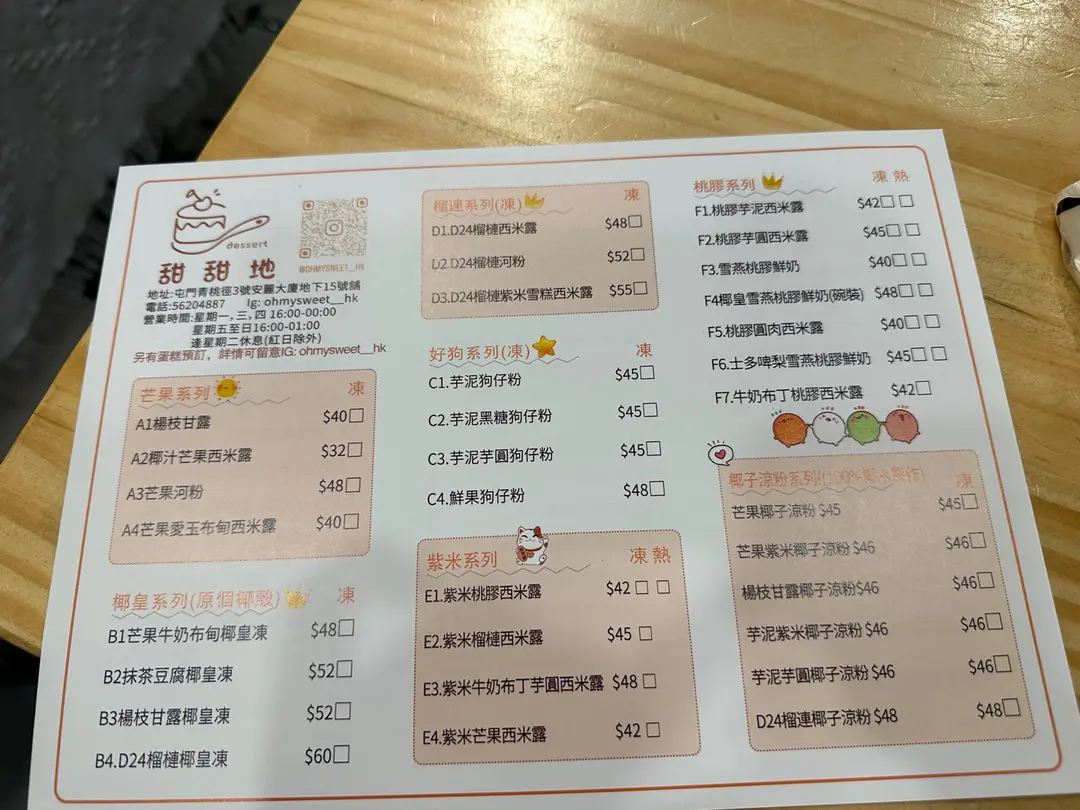 dessert
甜甜地
@OHMYSWEET__HK
地址:屯門青桃徑3號安麗大廈地下15號舖
電話:56204887 Ig: ohmysweet__hk
營業時間:星期一,三,四 16:00-00:00
星期五至日16:00-01:00
逢星期二休息(紅日除外)
另有蛋糕預訂，詳情可留意IG: ohmysweet__hk
芒果系列 凍
A1楊枝甘露 $40
A2椰汁芒果西米露 $32
A3芒果河粉 $48
A4芒果愛玉布甸西米露 $40
椰皇系列(原個椰殼) 凍
B1芒果牛奶布甸椰皇凍 $48
B2抹茶豆腐椰皇凍 $52
B3楊枝甘露椰皇凍 $52
B4.D24榴槤椰皇凍 $60
榴連系列(凍) 凍
D1.D24榴槤西米露 $48
D2.D24榴槤河粉 $52
D3.D24榴槤紫米雪糕西米露 $55
好狗系列(凍) 凍
C1.芋泥狗仔粉 $45
C2.芋泥黑糖狗仔粉 $45
C3.芋泥芋圓狗仔粉 $45
C4.鮮果狗仔粉 $48
紫米系列 凍 熱
E1.紫米桃膠西米露 $42
E2.紫米榴槤西米露 $45
E3.紫米牛奶布丁芋圓西米露 $48
E4.紫米芒果西米露 $42
桃膠系列 凍 熱
F1.桃膠芋泥西米露 $42
F2.桃膠芋圓西米露 $45
F3.雪燕桃膠鮮奶 $40
F4椰皇雪燕桃膠鮮奶(碗裝) $48
F5.桃膠圓肉西米露 $40
F6.士多啤梨雪燕桃膠鮮奶 $45
F7.牛奶布丁桃膠西米露 $42
椰子涼粉系列(100%椰水製作) 凍
芒果椰子涼粉 $45 $45
芒果紫米椰子涼粉 $46 $46
楊枝甘露椰子涼粉$46 $46
芋泥紫米椰子涼粉 $46 $46
芋泥芋圓椰子涼粉 $46 $46
D24榴連椰子涼粉 $48 $48